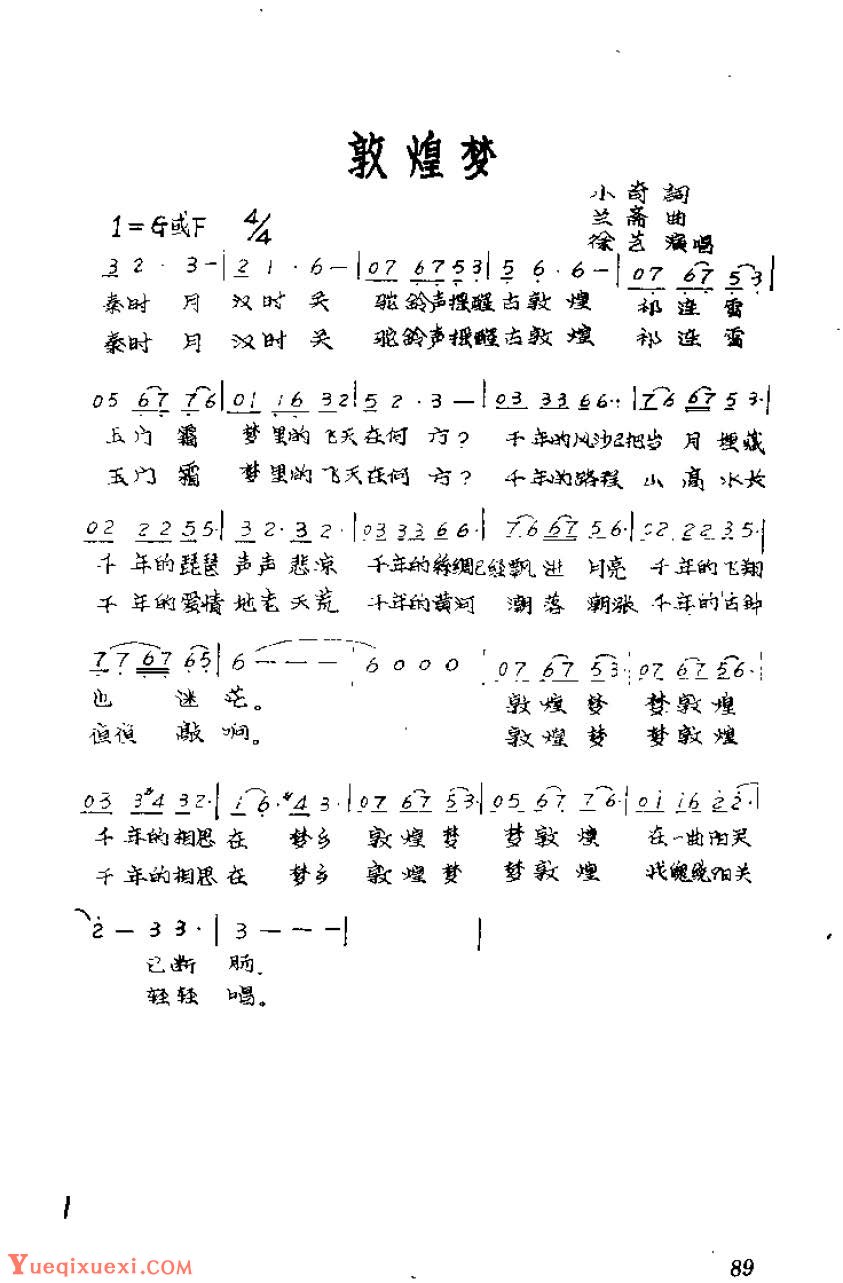 敦煌梦
小奇詞
1=G或F 4/4 兰斋曲
徐艺演唱
3 2 · 3 — | 2 1 · 6 — | 07 67 53 | 5 6 · 6 — | 07 67 53 |
秦时 月 汉时 关 驼铃声摇醒古敦煌 祁连雪
秦时 月 汉时 关 驼铃声摇醒古敦煌 祁连雪
05 67 76 | 01 16 32 | 5 2 · 3 — | 03 33 66·· | 76 67 53· |
玉门霜 梦里的飞天在何方? 千年的风沙已把岁月埋藏
玉门霜 梦里的飞天在何方? 千年的路程 山高水长
02 22 55· | 32· 32· | 03 33 66· | 76 67 56· | 02 22 35· |
千年的琵琶声声悲凉 千年的絲绸已经飘进月亮 千年的飞翔
千年的爱情地老天荒 千年的黄河 潮落潮涨 千年的古钟
7 7 67 65 | 6 — — — | 6 0 0 0 | 07 67 53 | 07 67 56· |
也 迷茫。 敦煌梦 梦敦煌
夜夜敲响。 敦煌梦 梦敦煌
03 3#4 32· | 16· #4 3· | 07 67 53· | 05 67 76· | 01 16 22· |
千年的相思在 梦乡 敦煌梦 梦敦煌 在一曲阳关
千年的相思在 梦乡 敦煌梦 梦敦煌 阳关
2 — 3 3 · | 3 — — — |
已断肠.
轻轻唱。
Yueqixuexi.com
89